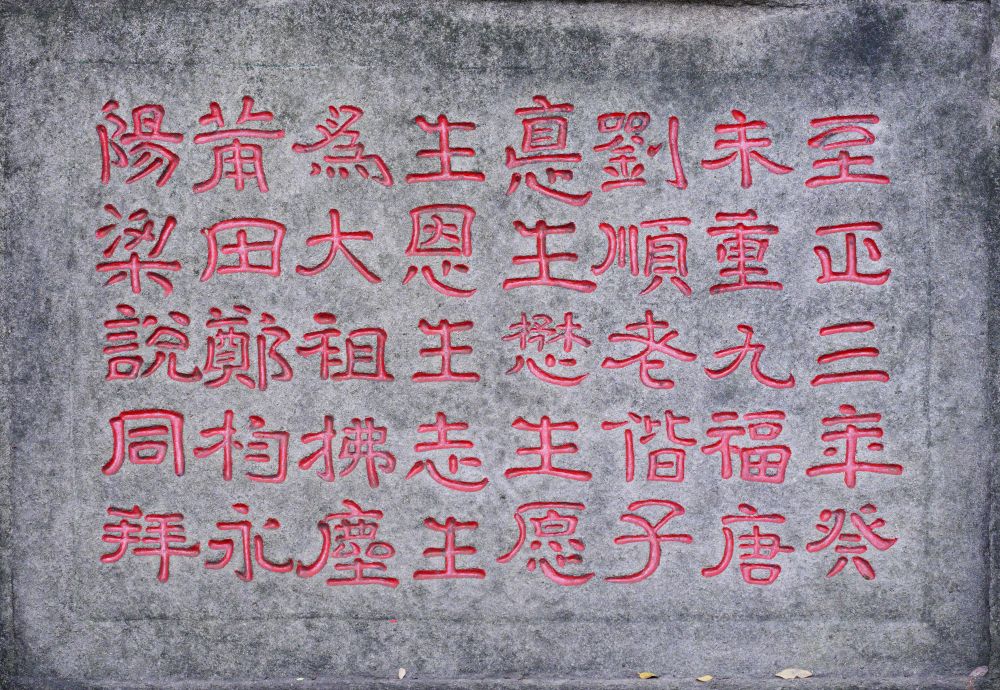 至正三年癸
未重九福唐
劉順老偕子
悳生懋生愿
生恩生志生
爲大祖拂塵
莆田鄭杓永
陽梁說同拜